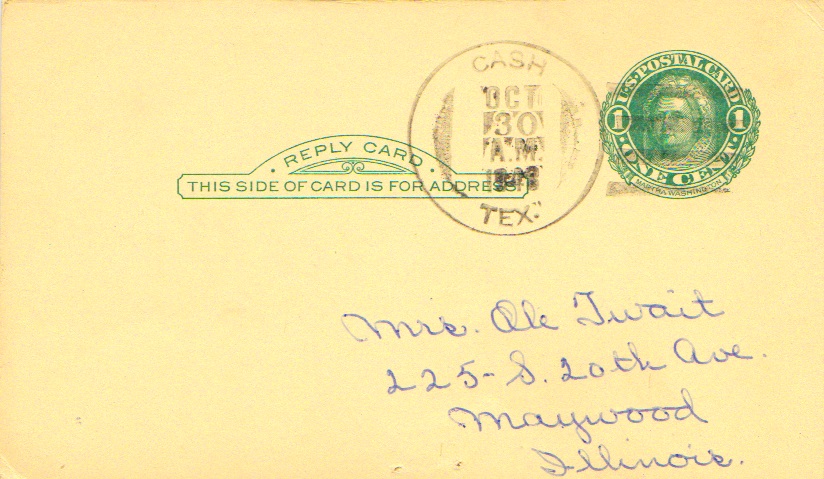 CASH
OCT
30
A.M.
TEX.
U.S. POSTAL CARD
1 1
ONE CENT.
MARTHA WASHINGTON
REPLY CARD.
THIS SIDE OF CARD IS FOR ADDRESS.
Mrs. Ole Twait
225-S. 20th Ave.
Maywood
Illinois.